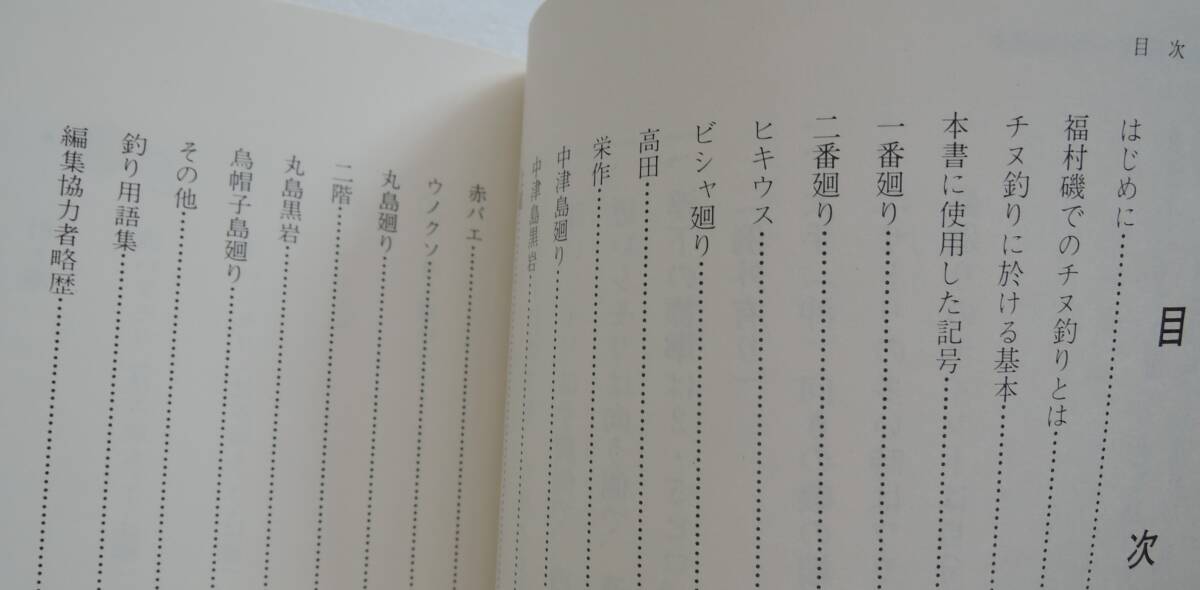 目次
目次
はじめに
福村磯でのチヌ釣りとは
チヌ釣りに於ける基本
本書に使用した記号
一番廻り
二番廻り
ヒキウス
ビシャ廻り
高田
栄作
中津島廻り
中津島黒岩
赤バエ
ウノクソ
丸島廻り
二階
丸島黒岩
烏帽子島廻り
その他
釣り用語集
編集協力者略歴